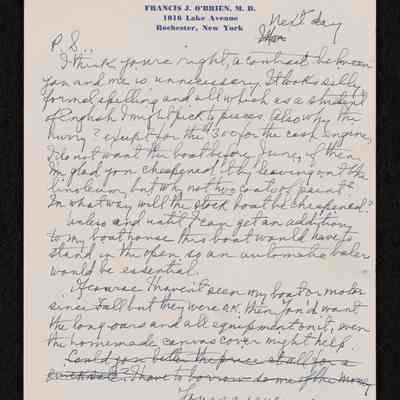 FRANCIS J. O'BRIEN, M. D.
1016 Lake Avenue
Rochester, New York
Next day
P.S.
I think you're right, a contract between
you and me is unnecessary. It looks silly,
formal, spelling and all which as a student
of English I might pick to pieces. Also why the
hurry? except for the $300 for the cash engine,
I do not want the boat before June, if then.
I'm glad you cheapened it by leaving out the
linoleum, but why not two coats of paint?
In what way will the stock boat be cheapened?
Unless and until I can get an addition
to my boathouse this boat would have to
stand in the open, so an automatic bailer
would be essential.
Of course I haven't seen my boat or motor
since Fall but they were OK then. You'd want
the long oars and all equipment on it, even
the homemade canvas cover might help.
Could you better the price at all for a
quick sale? I have to borrow some of the money